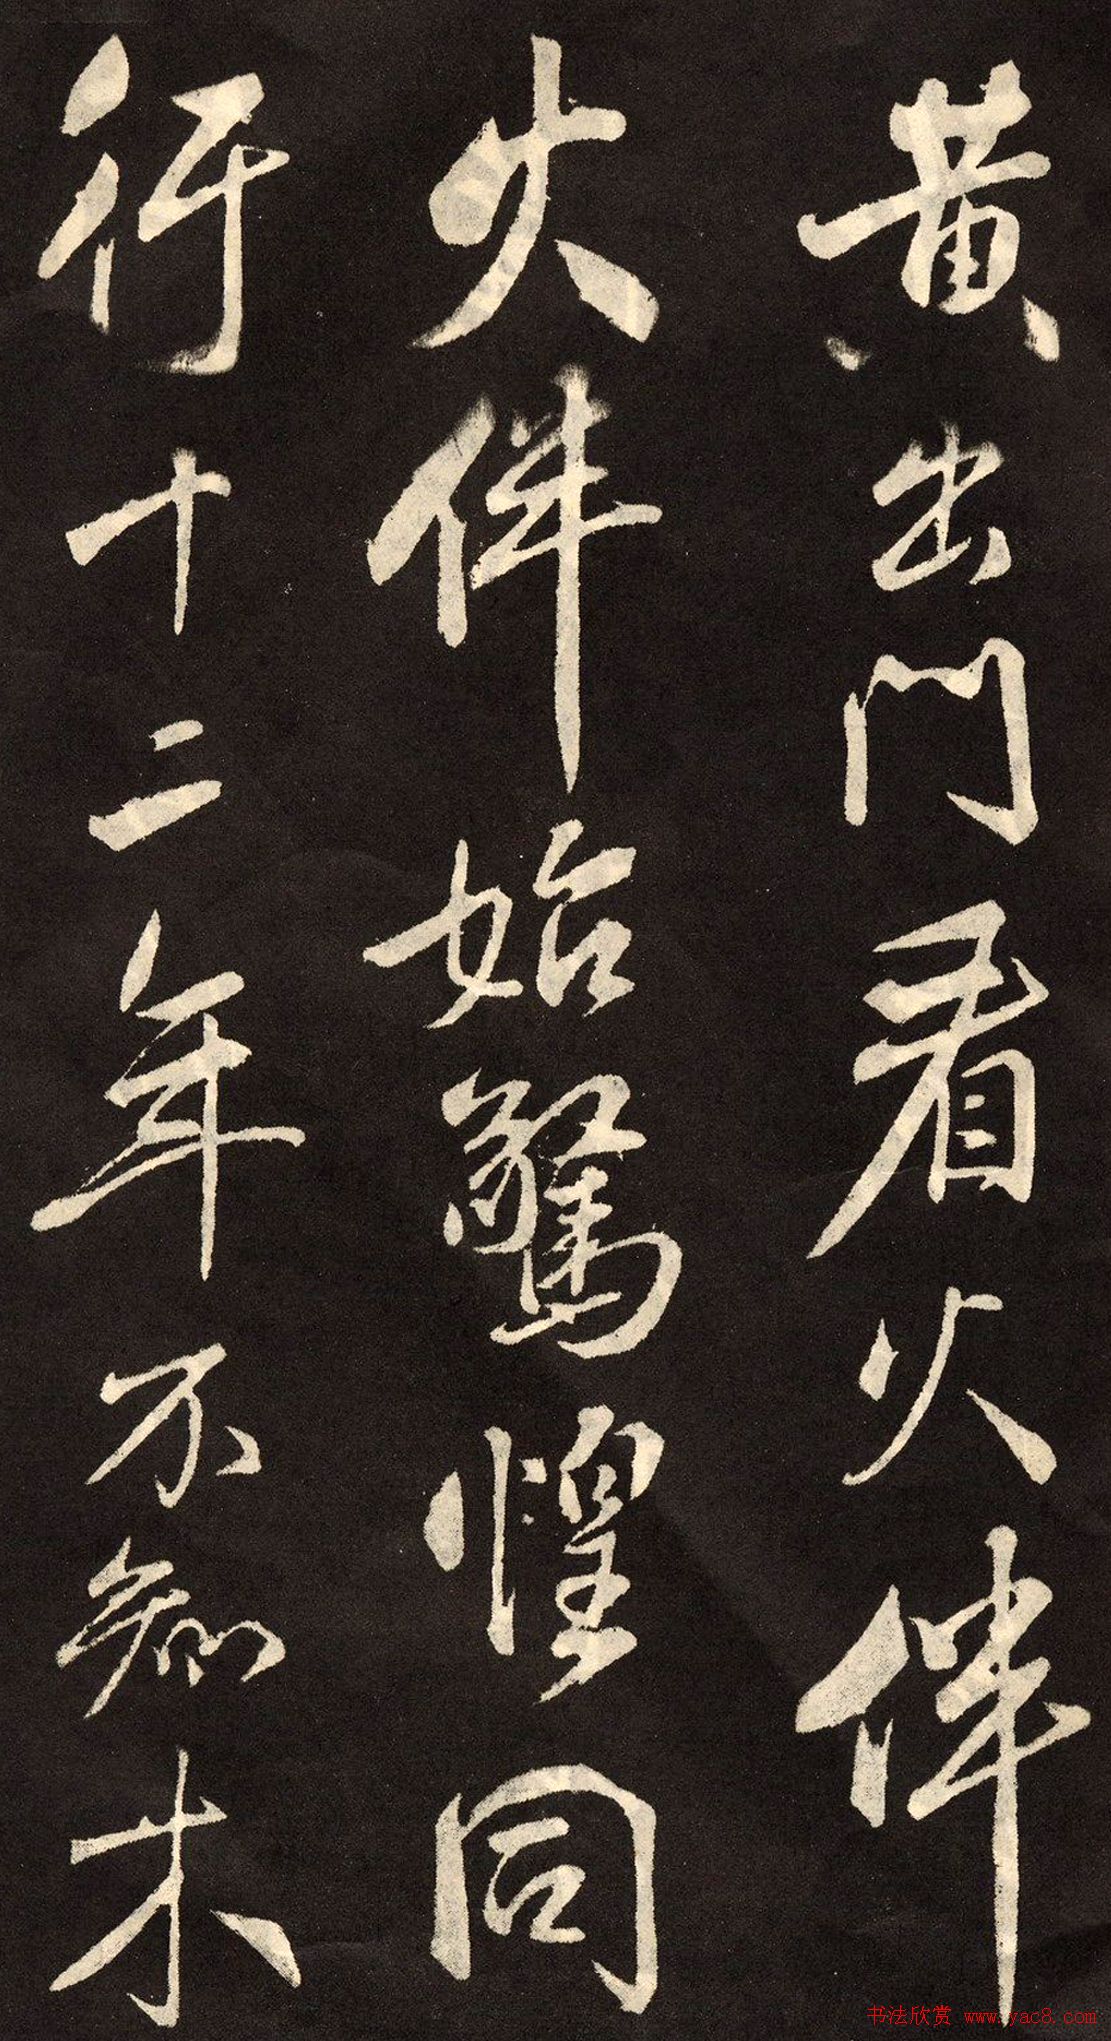 黄出門看火伴
火伴始驚惶同
行十二年不知木
书法欣赏 www.yac8.com